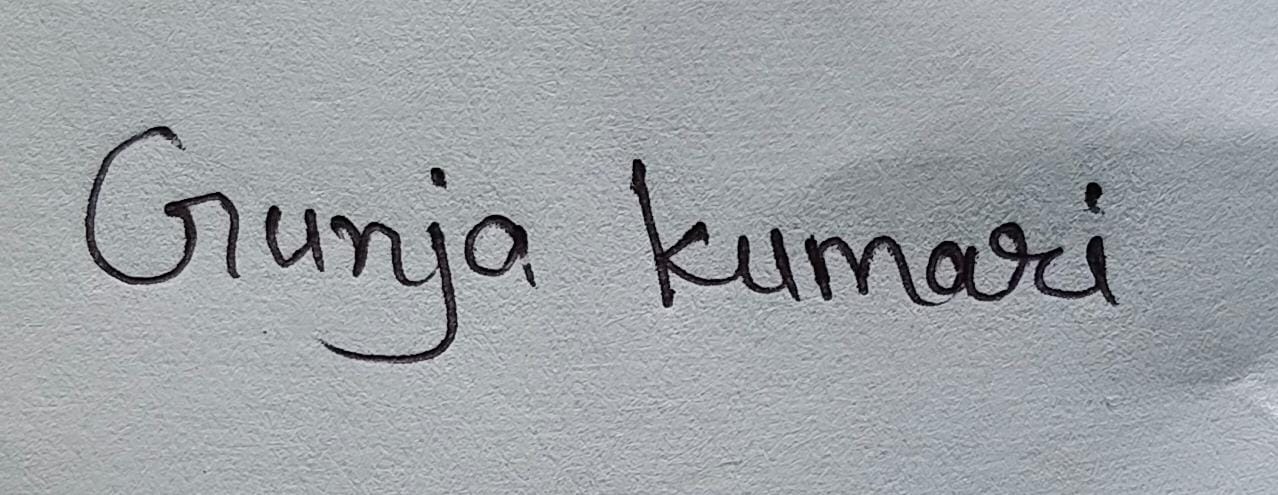 Gunja kumari